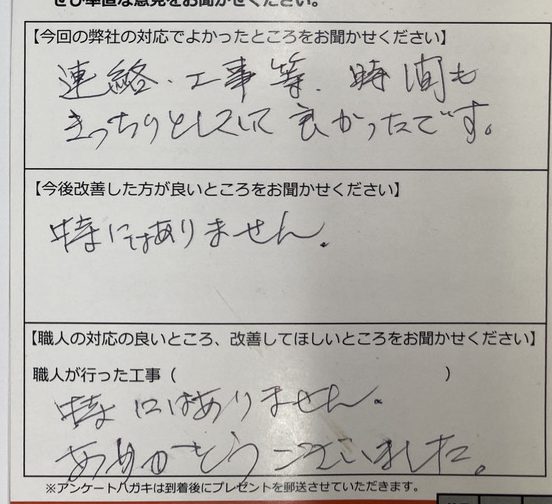 ぜひ率直な意見をお聞かせください。
【今回の弊社の対応でよかったところをお聞かせください】
連絡、工事等、時間も
きっちりとしていて良かったです。
【今後改善した方が良いところをお聞かせください】
特にはありません。
【職人の対応の良いところ、改善してほしいところをお聞かせください】
職人が行った工事（　　　　　　　　　　）
特にはありません。
ありがとうございました。
※アンケートハガキは到着後にプレゼントを郵送させていただきます。